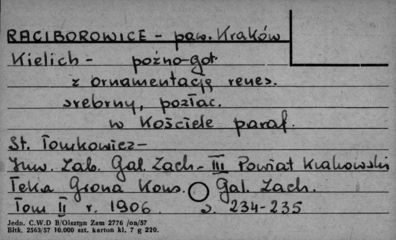 RACIBOROWICE - pow. Kraków
Kielich - późno-got
z ornamentacją renes.
srebrny, pozłac.
w Kościele paraf.
St. Tomkowicz -
Inw. Zab. Gal. Zach. - III Powiat Krakowski
Teka Grona Kons. Gal. Zach.
Tom II r. 1906. s. 234-235
Jedn. C.W.D B/Olsztyn Zam 2776 /on/57
Bltk. 2563/57 10.000 szt. karton kl. 7 g 220.